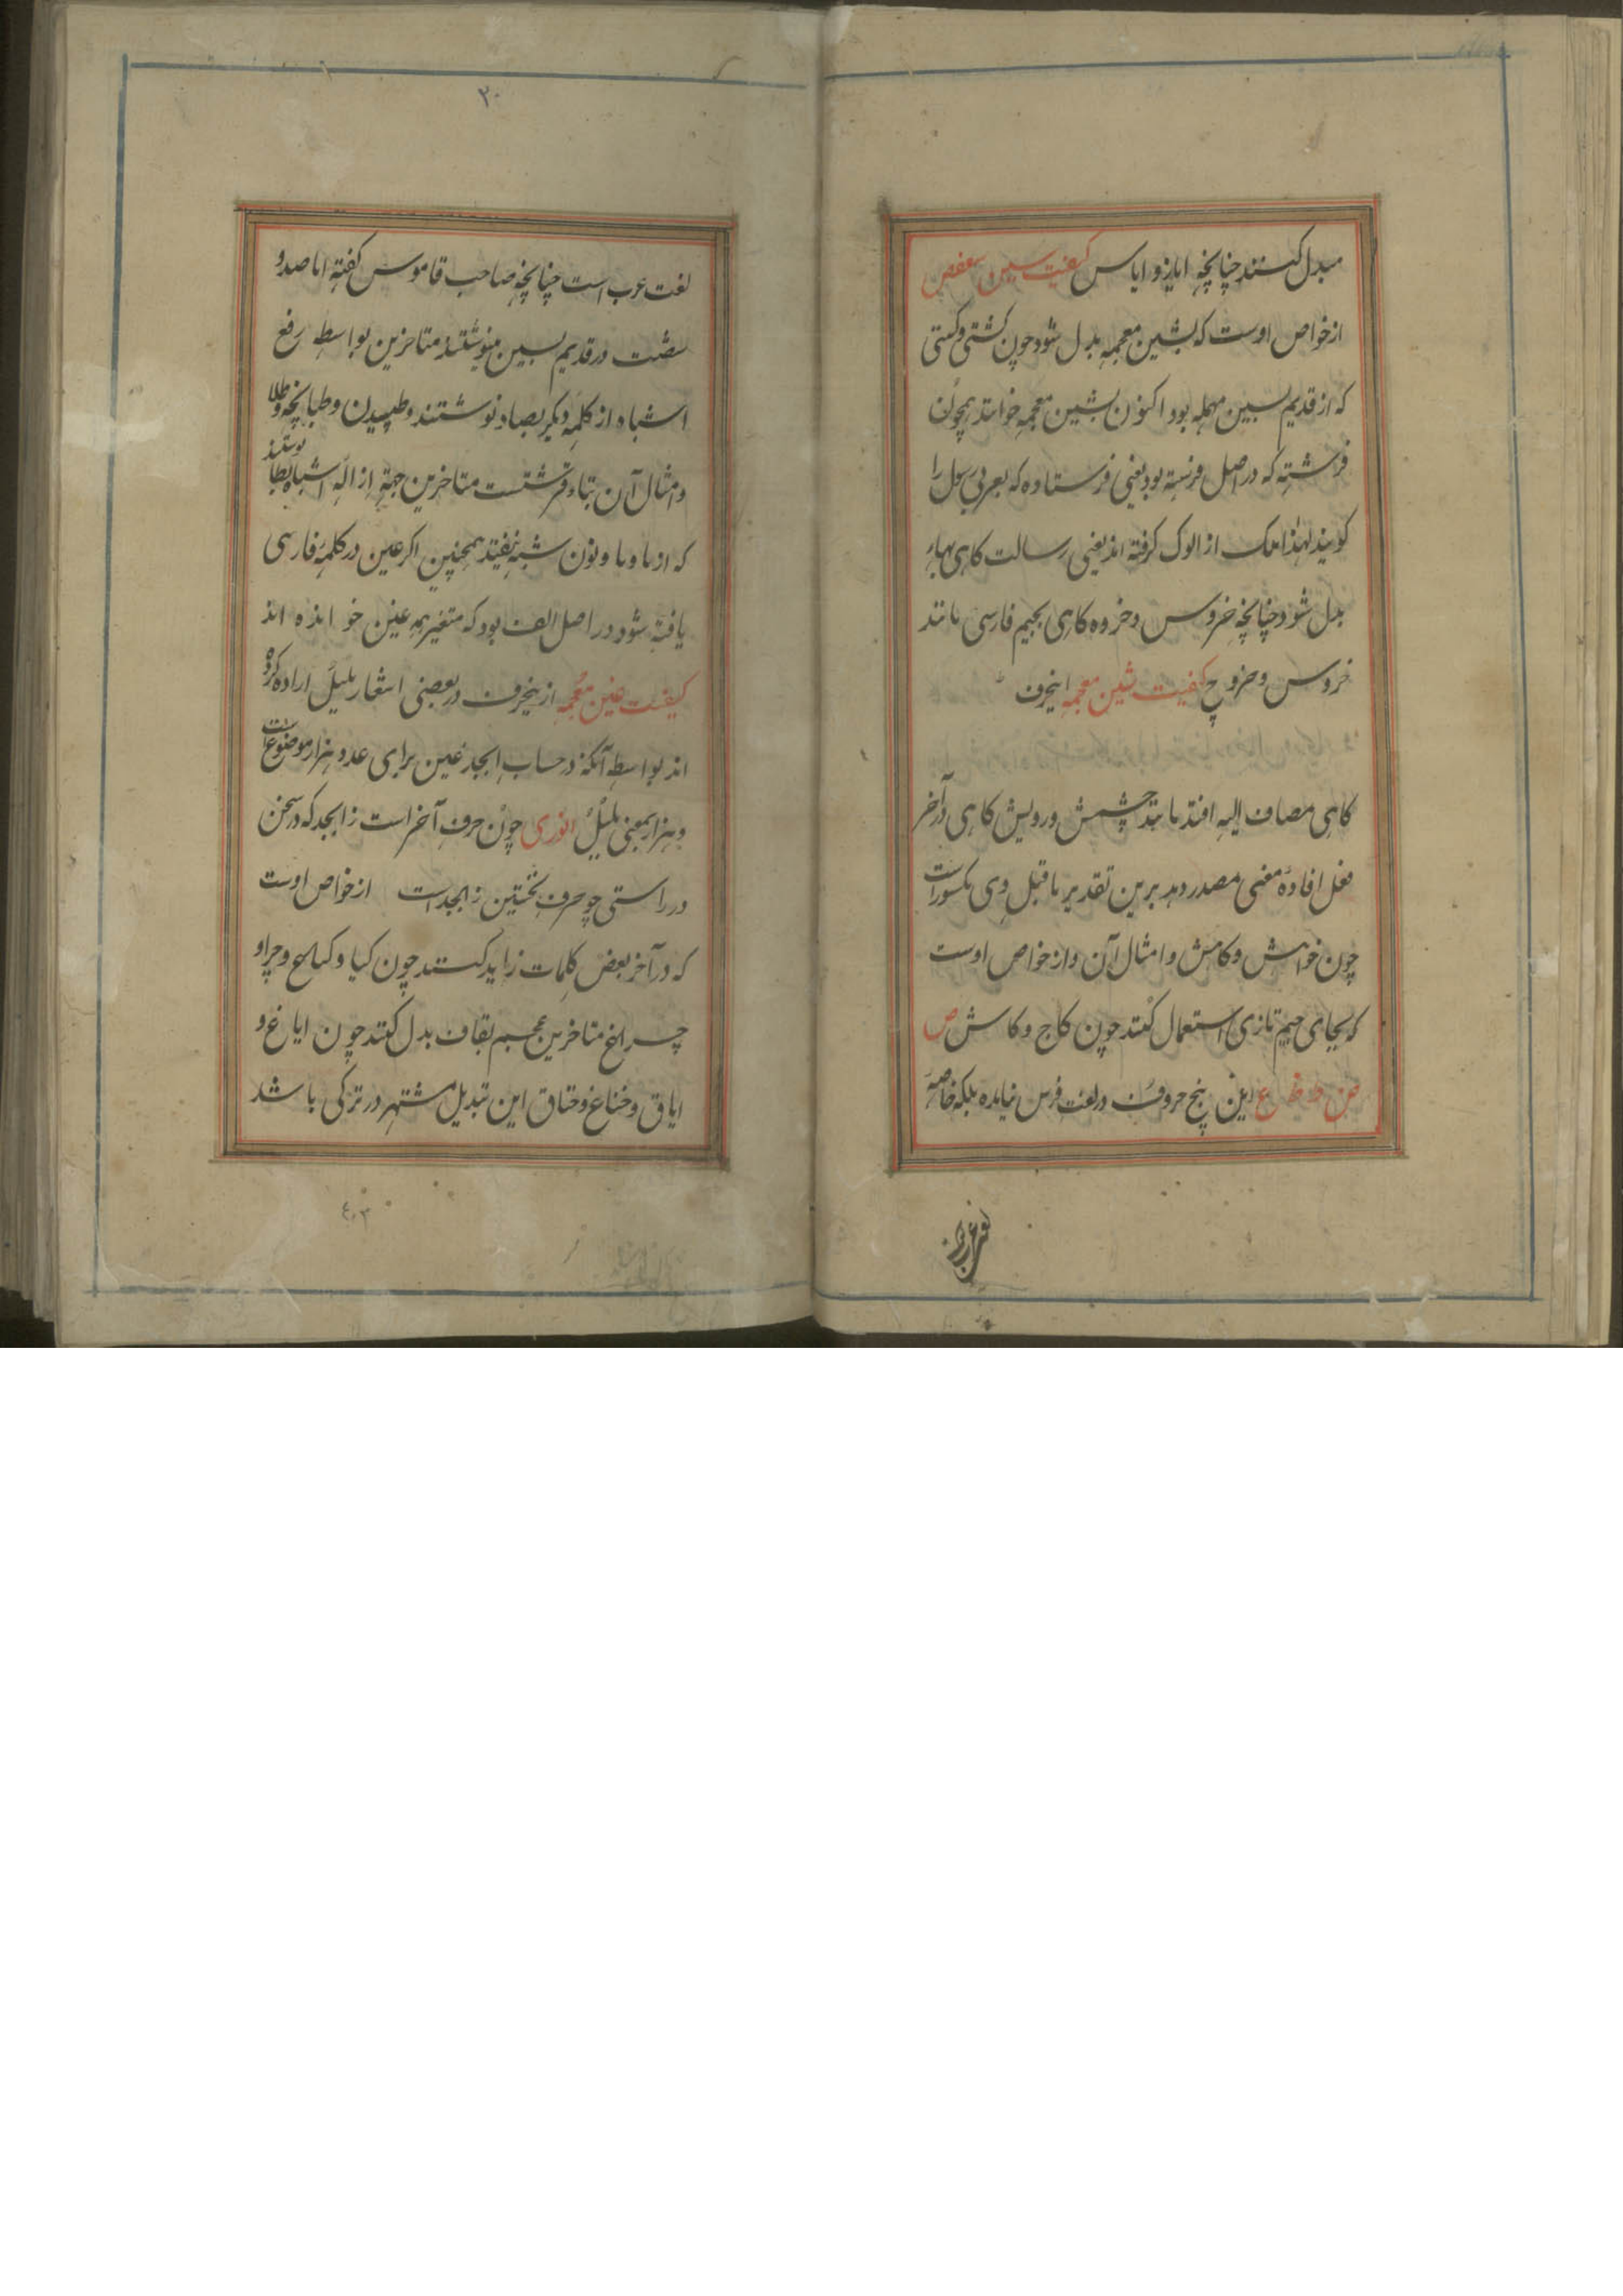 مبدل کنند چنانچه ایاز و ایاس کیفیت سین سعفص
از خواص اوست که بشین معجمه بدل شود چون کشتی و کستی
که از قدیم بسین مهمله بود اکنون بشین معجمه خوانند همچون
فرشته که در اصل فرسته بود یعنی فرستاده که بعربی رسول را
کویند لهذا ملک از الوک کرفته اند یعنی رسالت کاهی بهاء
بدل شود چنانچه خروس و خروه کاهی بجیم فارسی مانند
خروس و خروچ کیفیت شین معجمه اینحرف
کاهی مضاف الیه افتد مانند چشمش و رویش کاهی در آخر
فعل افادهٔ معنی مصدر دهد برین تقدیر ماقبل وی مکسور است
چون خواهش و کاهش و امثال آن و از خواص اوست
که بجای جیم تازی استعمال کنند چون کاج و کاش ص
ض ط ظ ع این پنج حروف در لغت فرس نیامده بلکه خاصهٔ
لغت عرب
۲۰
لغت عرب است چنانچه صاحب قاموس کفته اما صد و
شصت در قدیم بسین مینوشتند متاخرین بواسطه رفع
اشتباه از کلمه دیکر بصاد نوشتند و طپیدن و طپانچه و طلا
و امثال آن بتاء قرشتست متاخرین جهة ازاله اشتباه بطا نوشتند
که از با و یا و نون شبه نیفتد همچنین اکر عین در کلمه فارسی
یافته شود در اصل الف بود که متغیر بعین خوانده اند
کیفیت غین معجمه ازینحرف در بعضی اشعار بلبل اراده کرده
اند بواسطه آنکه در حساب ابجد غین برای عدد هزار موضوعست
و هزار بمعنی بلبل انوری چون حرف آخر است ز ابجد که در سخن
در راستی چو حرف نخستین ز ابجد است از خواص اوست
که در آخر بعض کلمات زاید کنند چون کیا و کیاغ و چرا و
چراغ متاخرین عجم بقاف بدل کنند چون ایاغ و
ایاق و جناغ و جناق این تبدیل مشتهر در ترکی باشد